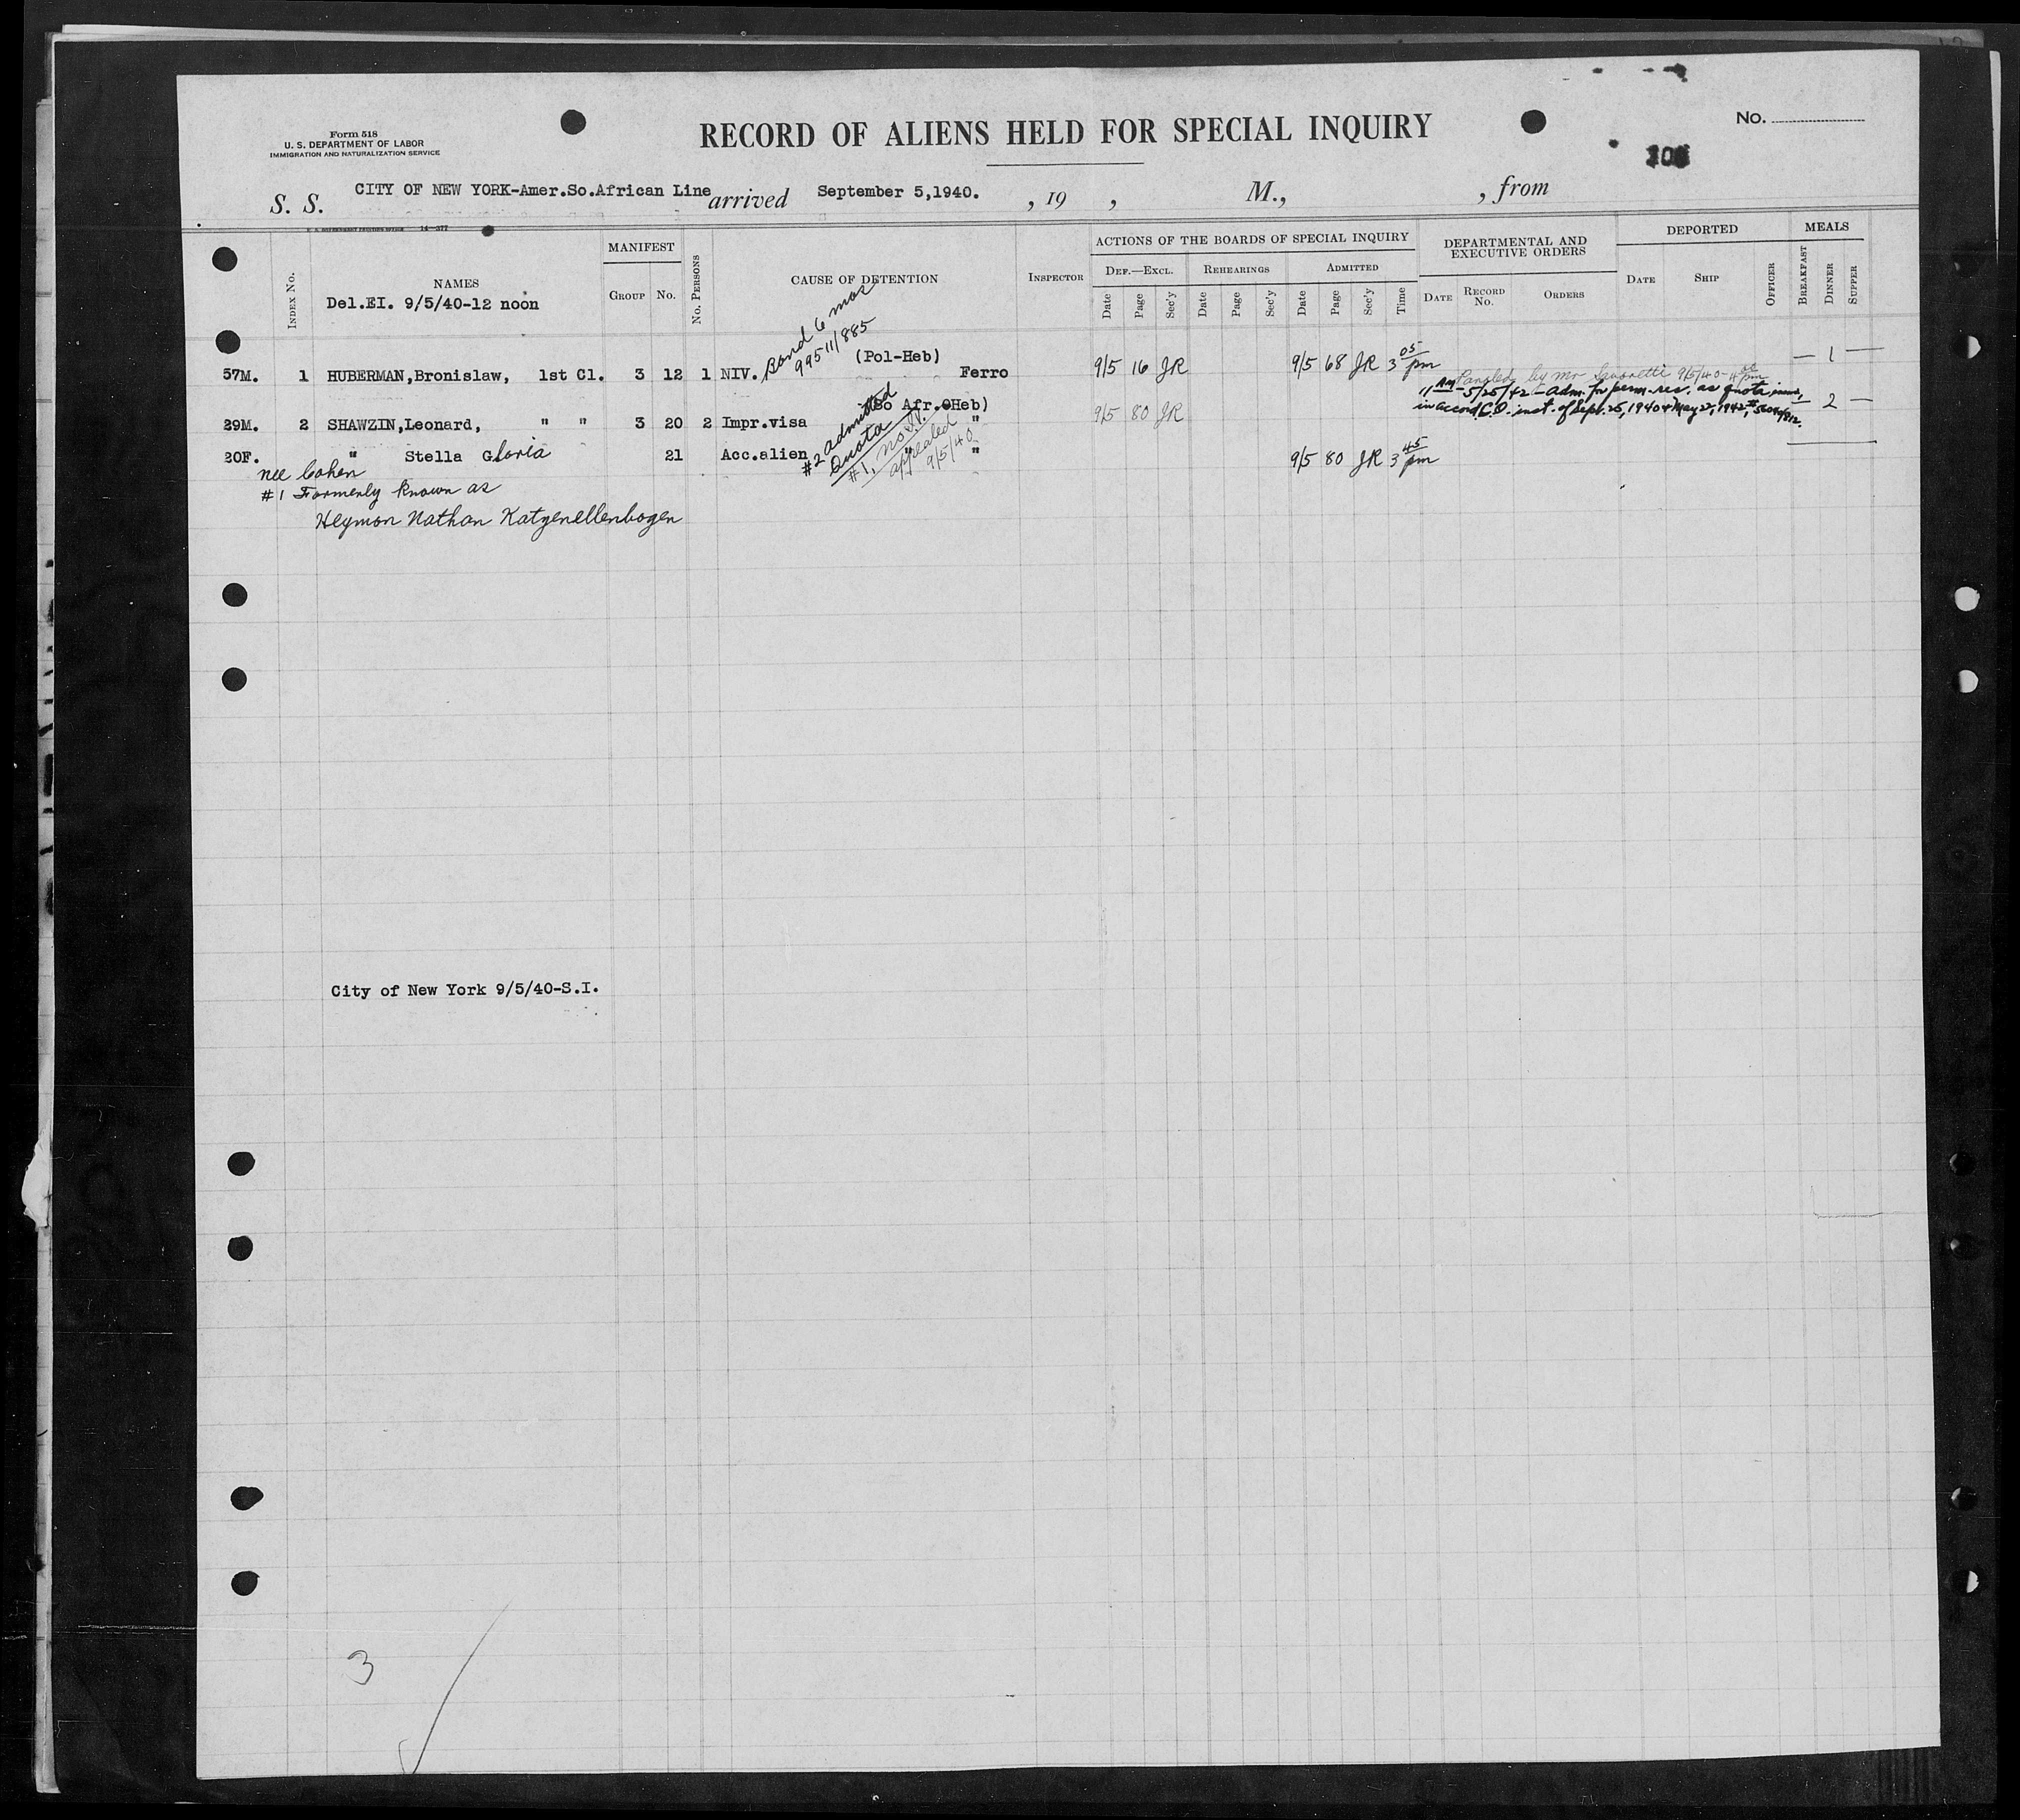 Form 518
U. S. DEPARTMENT OF LABOR
IMMIGRATION AND NATURALIZATION SERVICE
RECORD OF ALIENS HELD FOR SPECIAL INQUIRY
No.
S. S. CITY OF NEW YORK-Amer.So.African Line arrived September 5,1940. , 19 , M., , from
14—377
INDEX No. NAMES MANIFEST GROUP No. No. PERSONS CAUSE OF DETENTION INSPECTOR
ACTIONS OF THE BOARDS OF SPECIAL INQUIRY
DEF.—EXCL. REHEARINGS ADMITTED
Date Page Sec'y Date Page Sec'y Date Page Sec'y Time
DEPARTMENTAL AND EXECUTIVE ORDERS
DATE RECORD No. ORDERS
DEPORTED
DATE SHIP OFFICER
MEALS
BREAKFAST DINNER SUPPER
Del.EI. 9/5/40-12 noon
Bond 6 mos
99511/885
(Pol-Heb)
57M. 1 HUBERMAN,Bronislaw, 1st Cl. 3 12 1 NIV. Ferro 9/5 16 JR 9/5 68 JR 3 05 pm — 1 —
by Mr 9/5/40-4 pm
11 AM-5/25/42-Adm. for perm. res. as quota immi,
in accord C.O. inst. of Sept. 25, 1940 & May 22, 1942,
(So Afr.Heb)
29M. 2 SHAWZIN,Leonard, " " 3 20 2 Impr.visa " 9/5 80 JR 2 —
20F. " Stella Gloria 21 Acc.alien " " 9/5 80 JR 3 45 pm
#2 admitted
Quota
#1, no
appealed
9/5/40
nee Cohen
#1 Formerly known as
Heymon Nathan Katzenellenbogen
City of New York 9/5/40-S.I.
3